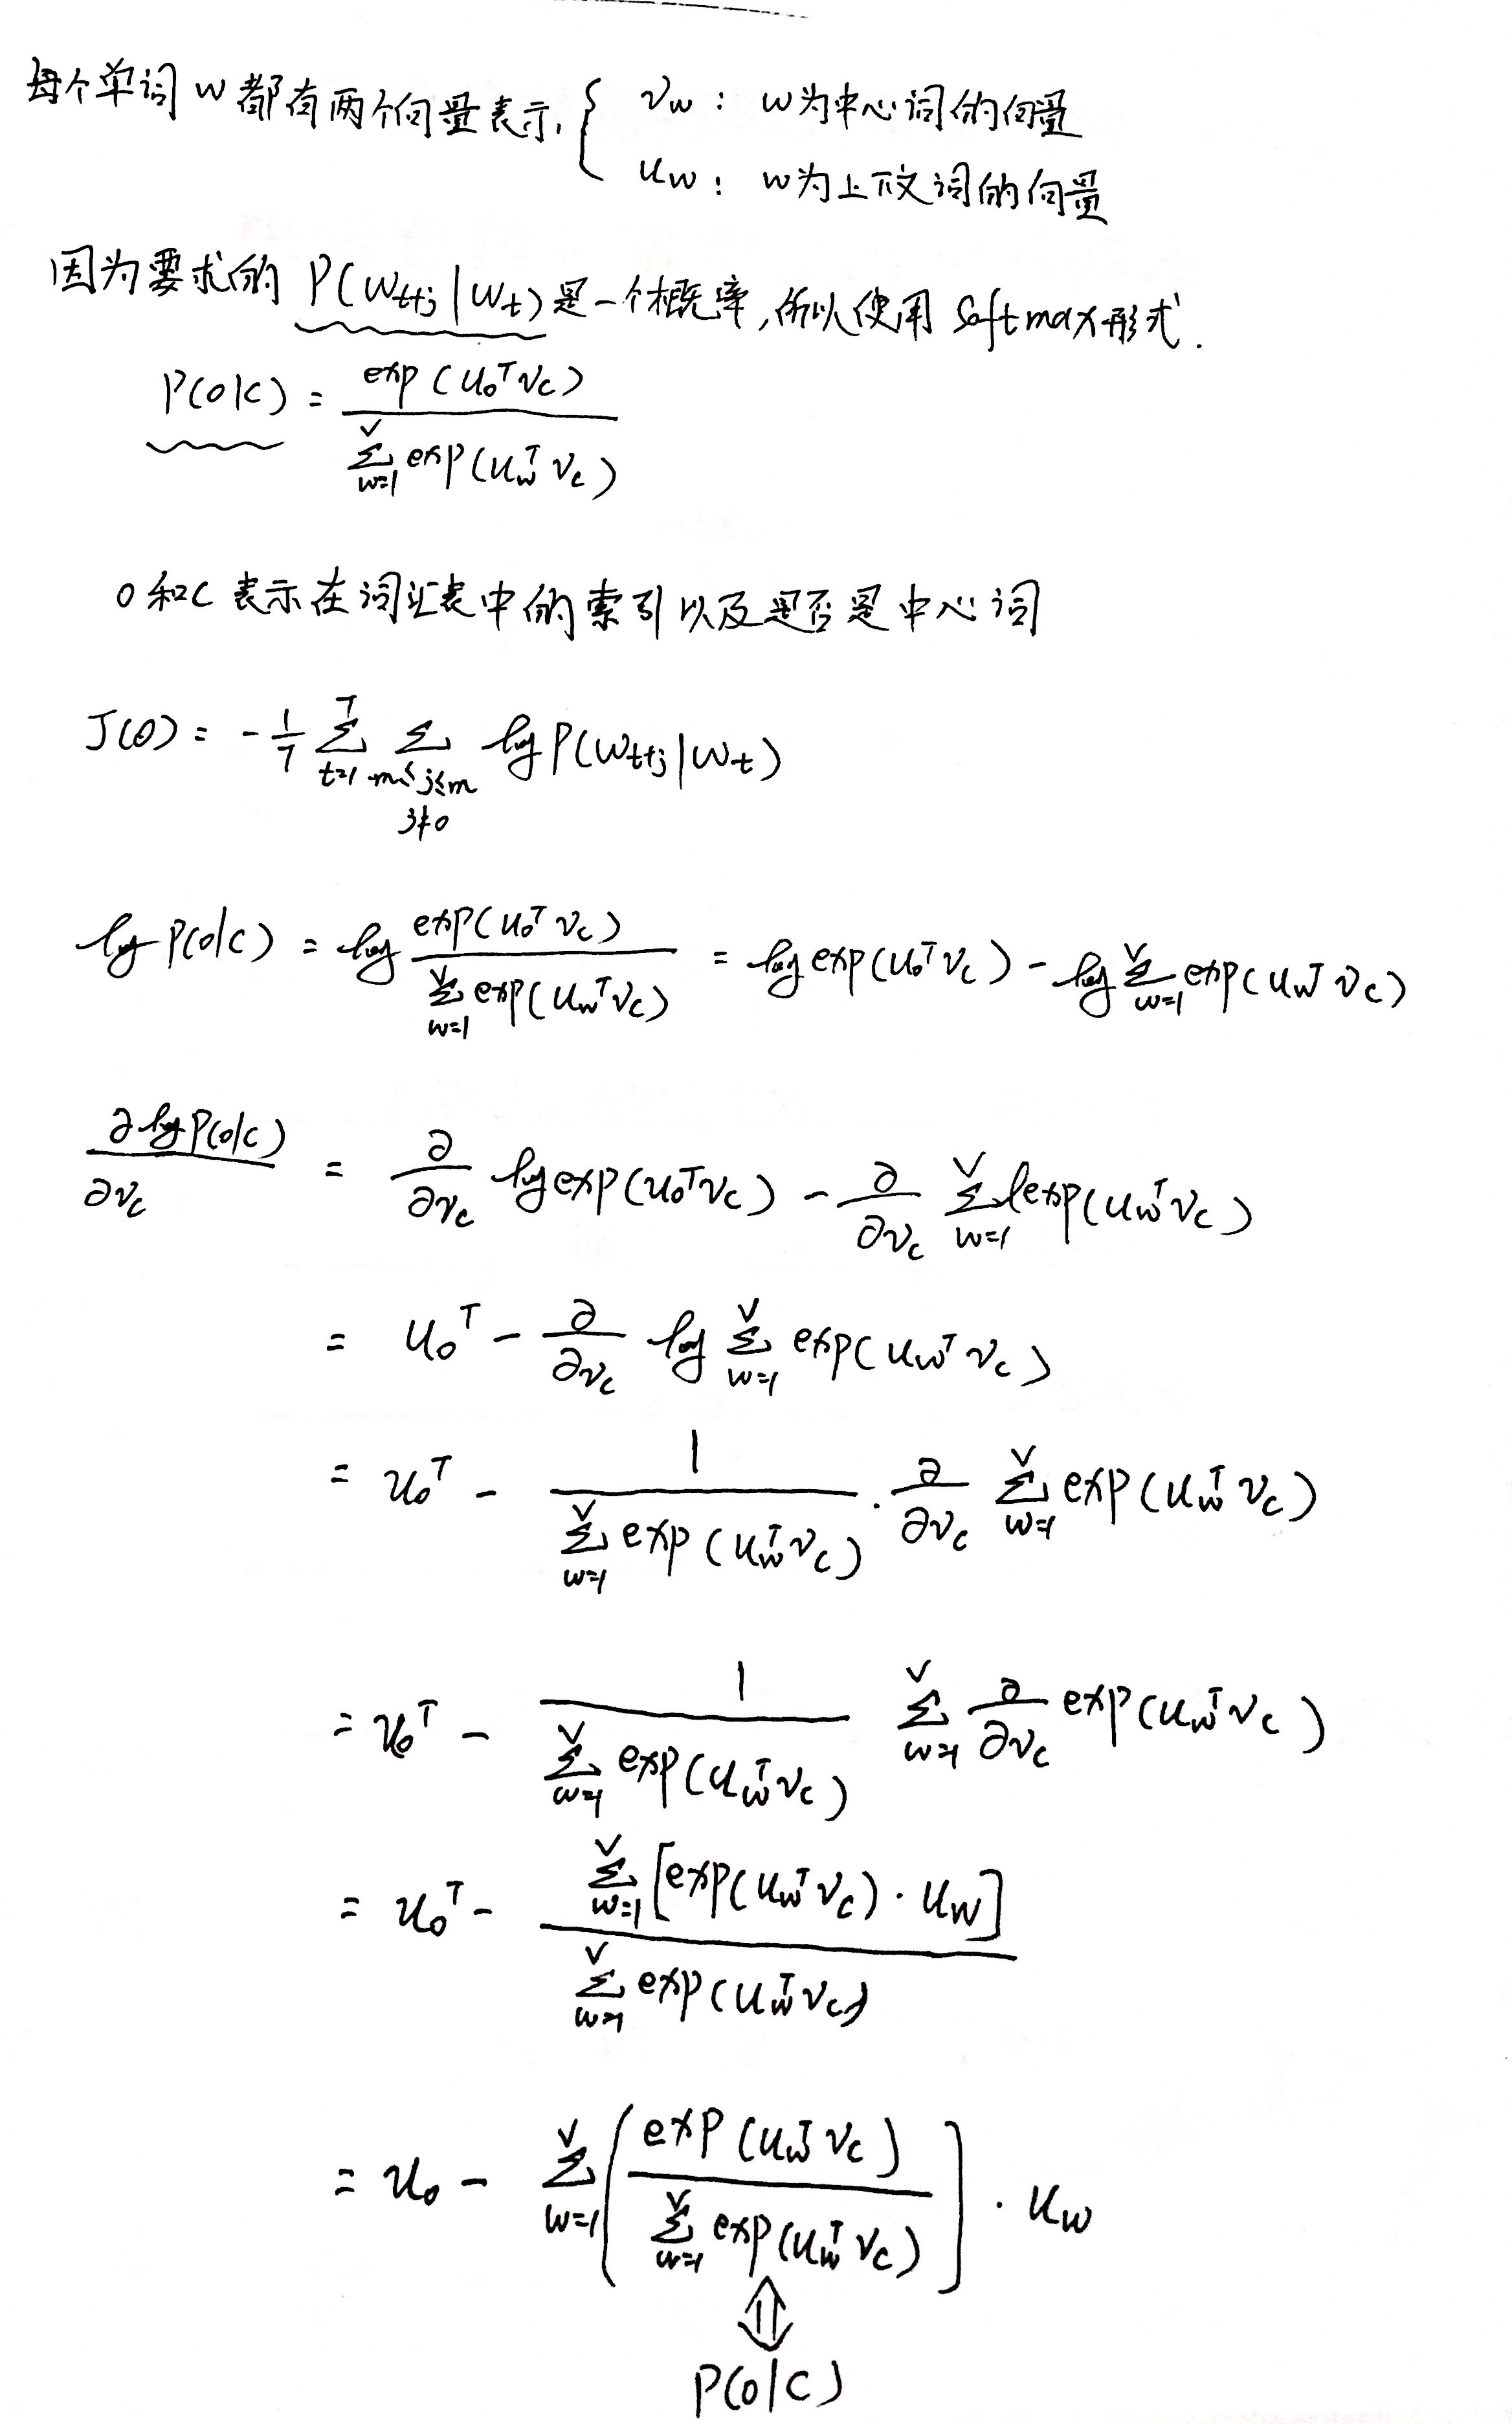 每个单词 w 都有两个向量表示, { v_w : w为中心词的向量
u_w : w为上下文词的向量
因为要求的 P(w_{t+j} | w_t) 是一个概率,所以使用 Softmax形式.
P(o|c) = \frac{exp(u_o^T v_c)}{\sum_{w=1}^{V} exp(u_w^T v_c)}
o和c 表示在词汇表中的索引以及是否是中心词
J(θ) = -\frac{1}{T} \sum_{t=1}^{T} \sum_{-m≤j≤m, j≠0} log P(w_{t+j} | w_t)
log P(o|c) = log \frac{exp(u_o^T v_c)}{\sum_{w=1}^{V} exp(u_w^T v_c)} = log exp(u_o^T v_c) - log \sum_{w=1}^{V} exp(u_w^T v_c)
\frac{∂ log P(o|c)}{∂v_c} = \frac{∂}{∂v_c} log exp(u_o^T v_c) - \frac{∂}{∂v_c} \sum_{w=1}^{V} exp(u_w^T v_c)
= u_o^T - \frac{∂}{∂v_c} log \sum_{w=1}^{V} exp(u_w^T v_c)
= u_o^T - \frac{1}{\sum_{w=1}^{V} exp(u_w^T v_c)} · \frac{∂}{∂v_c} \sum_{w=1}^{V} exp(u_w^T v_c)
= u_o^T - \frac{1}{\sum_{w=1}^{V} exp(u_w^T v_c)} \sum_{w=1}^{V} \frac{∂}{∂v_c} exp(u_w^T v_c)
= u_o^T - \frac{\sum_{w=1}^{V} [exp(u_w^T v_c) · u_w]}{\sum_{w=1}^{V} exp(u_w^T v_c)}
= u_o - \sum_{w=1}^{V} ( \frac{exp(u_w^T v_c)}{\sum_{w=1}^{V} exp(u_w^T v_c)} ] · u_w
⇕
P(o|c)